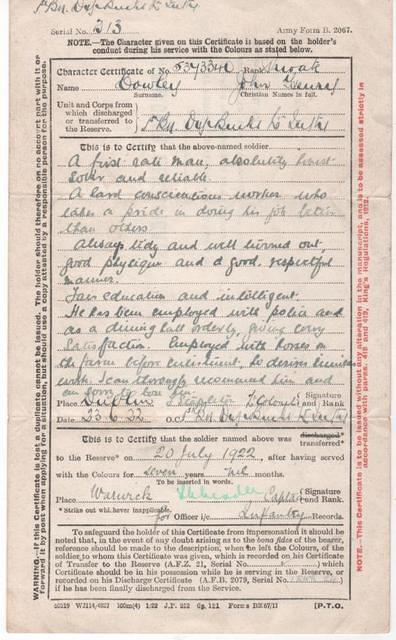 1st Bn. Oxf & Bucks Lt Infty
Serial No. 213
Army Form B. 2067.
NOTE.—The Character given on this Certificate is based on the holder's
conduct during his service with the Colours as stated below.
Character Certificate of No. Rank Private
Name Cowley John Henry
Surname. Christian Names in full.
Unit and Corps from
which discharged
or transferred to
the Reserve.
1st Bn. Oxf & Bucks Lt Infty
This is to Certify that the above-named soldier.
A first rate man, absolutely honest
sober and reliable.
A hard conscientious worker who
takes a pride in doing his job better
than others.
Always tidy and well turned out,
good physique and a good, respectful
manner.
Fair education and intelligent.
He has been employed with police and
as a dining hall orderly, giving every
satisfaction. Employed with horses on
the farm before enlistment, he desires similar
work. I can thoroughly recommend him and
am sorry to lose him.
Signature
Place Lt Colonel and Rank
Date 23.6.22 O.C. 1st Bn. Oxf & Bucks Lt Infty
This is to Certify that the soldier named above was discharged* transferred*
to the Reserve* on 20 July 1922, after having served
with the Colours for seven years nil months.
To be inserted in words.
Place Warwick Captain Signature and Rank.
* Strike out whichever inapplicable.
for Officer i/c Infantry Records.
To safeguard the holder of this Certificate from impersonation it should be
noted that, in the event of any doubt arising as to the bona fides of the bearer,
reference should be made to the description, when he left the Colours, of the
soldier to whom this Certificate was given, which is recorded on his Certificate
of Transfer to the Reserve (A.F.Z. 21, Serial No. )
which Certificate should be in his possession while he is serving in the Reserve, or
recorded on his Discharge Certificate (A.F.B. 2079, Serial No. )
if he has been finally discharged from the Service.
100m(4) 1/22 J.P. Gp. 121 Forms B2067/11 [P.T.O.
WARNING.—If this Certificate is lost a duplicate cannot be issued. The holder should therefore on no account part with it or
forward it by post when applying for a situation, but should use a copy attested by a responsible person for the purpose.
NOTE.—This Certificate is to be issued without any alteration in the manuscript, and is to be assessed strictly in
accordance with paras. 418 and 419, King's Regulations, 1912.